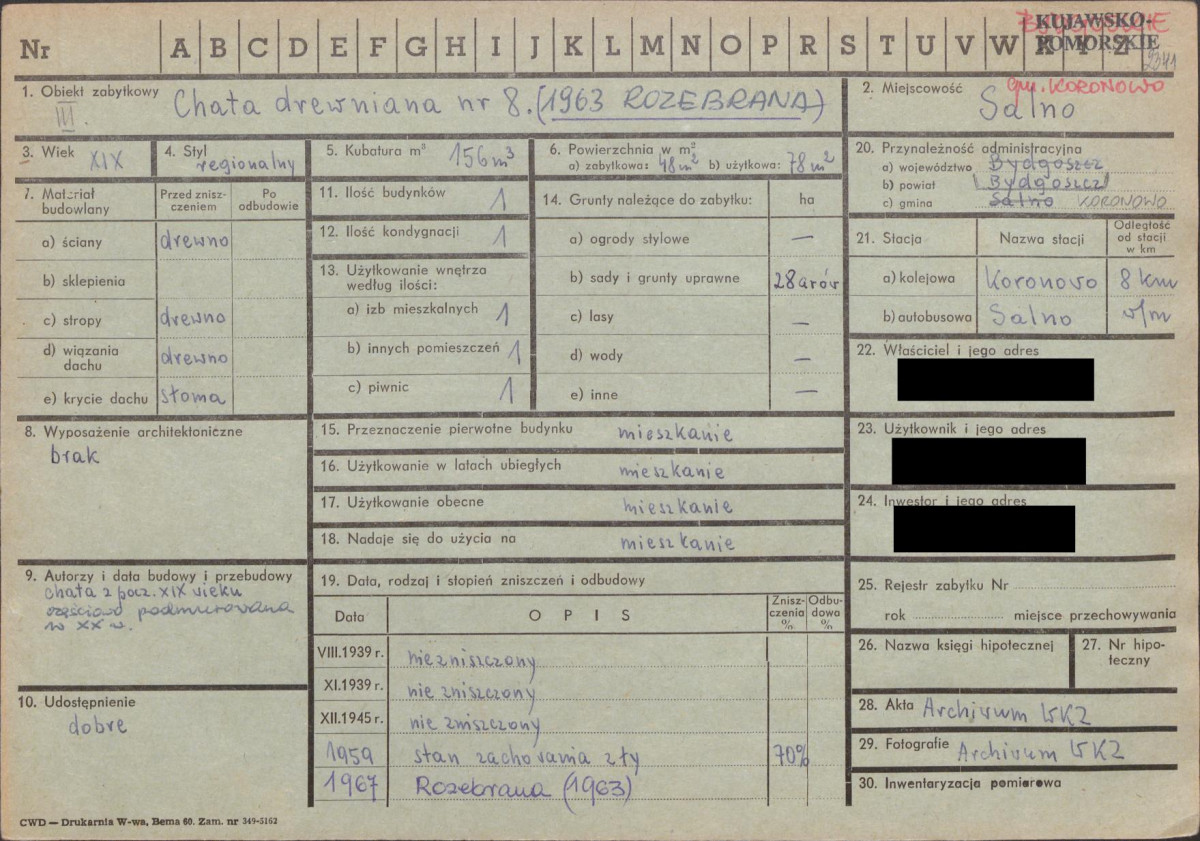 Nr A B C D E F G H I J K L M N O P R S T U V W X Y Z
KUJAWSKO-
POMORSKIE
1. Obiekt zabytkowy
III.
Chata drewniana nr 8. (1963 ROZEBRANA)
2. Miejscowość
gm. KORONOWO
Salno
3. Wiek XIX
4. Styl regionalny
5. Kubatura m³ 156 m³
6. Powierzchnia w m²
a) zabytkowa: 48 m² b) użytkowa: 78 m²
7. Materiał budowlany
Przed zniszczeniem
Po odbudowie
a) ściany drewno
b) sklepienia
c) stropy drewno
d) wiązania dachu drewno
e) krycie dachu słoma
8. Wyposażenie architektoniczne
brak
9. Autorzy i data budowy i przebudowy
chata z pocz. XIX wieku
częściowo podmurowana
w XX w.
10. Udostępnienie
dobre
11. Ilość budynków 1
12. Ilość kondygnacji 1
13. Użytkowanie wnętrza
według ilości:
a) izb mieszkalnych 1
b) innych pomieszczeń 1
c) piwnic 1
14. Grunty należące do zabytku: ha
a) ogrody stylowe —
b) sady i grunty uprawne 28 arów
c) lasy —
d) wody —
e) inne —
15. Przeznaczenie pierwotne budynku mieszkanie
16. Użytkowanie w latach ubiegłych mieszkanie
17. Użytkowanie obecne mieszkanie
18. Nadaje się do użycia na mieszkanie
19. Data, rodzaj i stopień zniszczeń i odbudowy
Data OPIS Zniszczenia % Odbudowa %
VIII.1939 r. niezniszczony
XI.1939 r. nie zniszczony
XII.1945 r. nie zniszczony
1959 stan zachowania zły 70%
1967 Rozebrana (1963)
20. Przynależność administracyjna
a) województwo Bydgoszcz
b) powiat Bydgoszcz
c) gmina Salno KORONOWO
21. Stacja Nazwa stacji Odległość od stacji w km
a) kolejowa Koronowo 8 km
b) autobusowa Salno v/m
22. Właściciel i jego adres
23. Użytkownik i jego adres
24. Inwestor i jego adres
25. Rejestr zabytku Nr
rok miejsce przechowywania
26. Nazwa księgi hipotecznej
27. Nr hipoteczny
28. Akta Archivum WKZ
29. Fotografie Archivum WKZ
30. Inwentaryzacja pomiarowa
CWD — Drukarnia W-wa, Bema 60. Zam. nr 349-5162